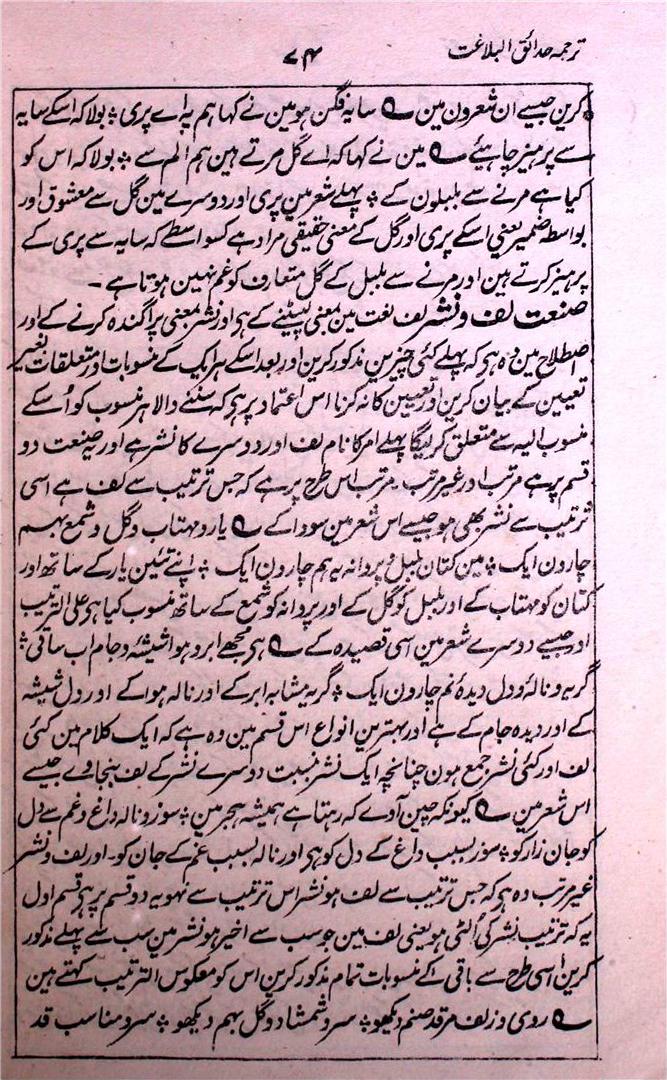 ترجمہ حدائق البلاغت
۷۴
کرین جیسے ان شعرون مین ؎ سایہ فگن ہو مین نے کہا ہم پہ اے پری ؞ بولا کہ اسکے سایہ
سے پرہیز چاہیئے ؎ مین نے کہا کہ اے گل مرتے ہین ہم الم سے ؞ بولا کہ اس کو
کیا ہے مرنے سے بلبلون کے ؞ پہلے شعر مین پری اور دوسرے مین گل سے معشوق اور
بواسطہ ضمیر یعنی اسکے پری اور گل کے معنی حقیقی مراد ہے کسواسطے کہ سایہ سے پری کے
پرہیز کرتے ہین اور مرنے سے بلبل کے گل متعارف کو غم نہین ہوتا ہے ۔
صنعت لف و نشر لف لغت مین بمعنی لپیٹنے کے ہی اور نشر بمعنی پراگندہ کرنے کے اور
اصطلاح مین وہ ہی کہ پہلے کئی چیزین مذکور کرین اور بعد اسکے ہر ایک کے منسوبات اور متعلقات بغیر
تعیین کے بیان کرین اور تعیین کا نہ کرنا اس اعتماد پر ہی کہ سننے والا ہر منسوب کو اُسکے
منسوب الیہ سے متعلق کر لیگا پہلے امر کا نام لف اور دوسرے کا نشر ہے اور یہ صنعت دو
قسم پر ہے مرتب اور غیر مرتب ۔ مرتب اس طرح پر ہے کہ جس ترتیب سے لف ہے اسی
ترتیب سے نشر بھی ہو جیسے اس شعر مین سودا کے ؎ یار و مہتاب و گل و شمع بہم
چارون ایک ؞ مین کتان بلبل و پروانہ یہ ہم چارون ایک ؞ اپنے تئین یار کے ساتھ اور
کتان کو مہتاب کے اور بلبل کو گل کے اور پروانہ کو شمع کے ساتھ منسوب کیا ہی علی الترتیب
اور جیسے دوسرے شعر مین اسی قصیدہ کے ؎ ہی مجھے ابر و ہوا شیشہ و جام اب ساقی ؞
گریہ و نالہ و دل دیدۂ نم چارون ایک ؞ گریہ مشابہ ابر کے اور نالہ ہوا کے اور دل شیشہ
کے اور دیدہ جام کے ہے اور بہترین انواع اس قسم مین وہ ہے کہ ایک کلام مین کئی
لف اور کئی نشر جمع ہون چنانچہ ایک نشر بنسبت دوسرے نشر کے لف بنجاوے جیسے
اس شعر مین ؎ کیونکہ چین آوے کہ رہتا ہے ہمیشہ ہجر مین ؞ سوز و نالہ داغ و غم سے دل
کو جان زار کو ؞ سوز بسبب داغ کے دل کو ہی اور نالہ بسبب غم کے جان کو ۔ اور لف و نشر
غیر مرتب وہ ہی کہ جس ترتیب سے لف ہو نشر اس ترتیب سے نہو یہ دو قسم پر ہی قسم اول
یہ کہ ترتیب نشر کی اُلٹی ہو یعنی لف مین جو سب سے اخیر ہو نشر مین سب سے پہلے مذکور
کرین اسی طرح سے باقی کے منسوبات تمام مذکور کرین اس کو معکوس الترتیب کہتے ہین
؎ روی و زلف مر قد صنم دیکھو ؞ سرو شمشاد و گل بہم دیکھو ؞ سرو مناسب قد